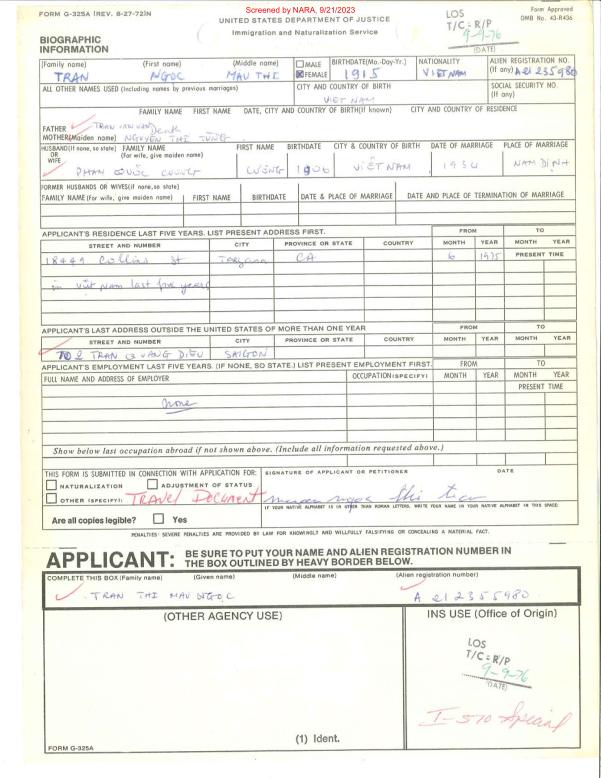 Screened by NARA, 9/21/2023
FORM G-325A (REV. 8-27-72)N
Form Approved
OMB No. 43-R436
UNITED STATES DEPARTMENT OF JUSTICE
Immigration and Naturalization Service
LOS
T/C: R/P
9-9-76
(DATE)
BIOGRAPHIC
INFORMATION
(Family name) (First name) (Middle name)
TRAN NGOC MAU THI
MALE
FEMALE
BIRTHDATE(Mo.-Day-Yr.)
1915
NATIONALITY
VIET NAM
ALIEN REGISTRATION NO.
(If any)
ALL OTHER NAMES USED (Including names by previous marriages)
CITY AND COUNTRY OF BIRTH
VIET NAM
SOCIAL SECURITY NO.
(If any)
FAMILY NAME FIRST NAME DATE, CITY AND COUNTRY OF BIRTH(If known) CITY AND COUNTRY OF RESIDENCE
FATHER TRAN
MOTHER(Maiden name) NGUYEN THI TÙNG
HUSBAND(If none, so state) FAMILY NAME FIRST NAME BIRTHDATE CITY & COUNTRY OF BIRTH DATE OF MARRIAGE PLACE OF MARRIAGE
OR (For wife, give maiden name)
WIFE
PHAN QUỐC 1906 VIỆT NAM 1934 NAM DINH
FORMER HUSBANDS OR WIVES(if none,so state)
FAMILY NAME (For wife, give maiden name) FIRST NAME BIRTHDATE DATE & PLACE OF MARRIAGE DATE AND PLACE OF TERMINATION OF MARRIAGE
APPLICANT'S RESIDENCE LAST FIVE YEARS. LIST PRESENT ADDRESS FIRST. FROM TO
STREET AND NUMBER CITY PROVINCE OR STATE COUNTRY MONTH YEAR MONTH YEAR
18449 Collins St Tarzana CA 6 1975 PRESENT TIME
in Viêt Nam last five years
APPLICANT'S LAST ADDRESS OUTSIDE THE UNITED STATES OF MORE THAN ONE YEAR FROM TO
STREET AND NUMBER CITY PROVINCE OR STATE COUNTRY MONTH YEAR MONTH YEAR
TRAN QUANG DIEU SAIGON
APPLICANT'S EMPLOYMENT LAST FIVE YEARS. (IF NONE, SO STATE.) LIST PRESENT EMPLOYMENT FIRST. FROM TO
FULL NAME AND ADDRESS OF EMPLOYER OCCUPATION(SPECIFY) MONTH YEAR MONTH YEAR
PRESENT TIME
none
Show below last occupation abroad if not shown above. (Include all information requested above.)
THIS FORM IS SUBMITTED IN CONNECTION WITH APPLICATION FOR:
SIGNATURE OF APPLICANT OR PETITIONER DATE
NATURALIZATION ADJUSTMENT OF STATUS
OTHER (SPECIFY): TRAVEL DOCUMENT
ngoc thi tran
IF YOUR NATIVE ALPHABET IS IN OTHER THAN ROMAN LETTERS, WRITE YOUR NAME IN YOUR NATIVE ALPHABET IN THIS SPACE:
Are all copies legible? Yes
PENALTIES: SEVERE PENALTIES ARE PROVIDED BY LAW FOR KNOWINGLY AND WILLFULLY FALSIFYING OR CONCEALING A MATERIAL FACT.
APPLICANT: BE SURE TO PUT YOUR NAME AND ALIEN REGISTRATION NUMBER IN
THE BOX OUTLINED BY HEAVY BORDER BELOW.
COMPLETE THIS BOX (Family name) (Given name) (Middle name) (Alien registration number)
TRAN THI MAU NGOC A 21 2355980
(OTHER AGENCY USE)
INS USE (Office of Origin)
LOS
T/C: R/P
9-9-76
(DATE)
I-570 Special
(1) Ident.
FORM G-325A